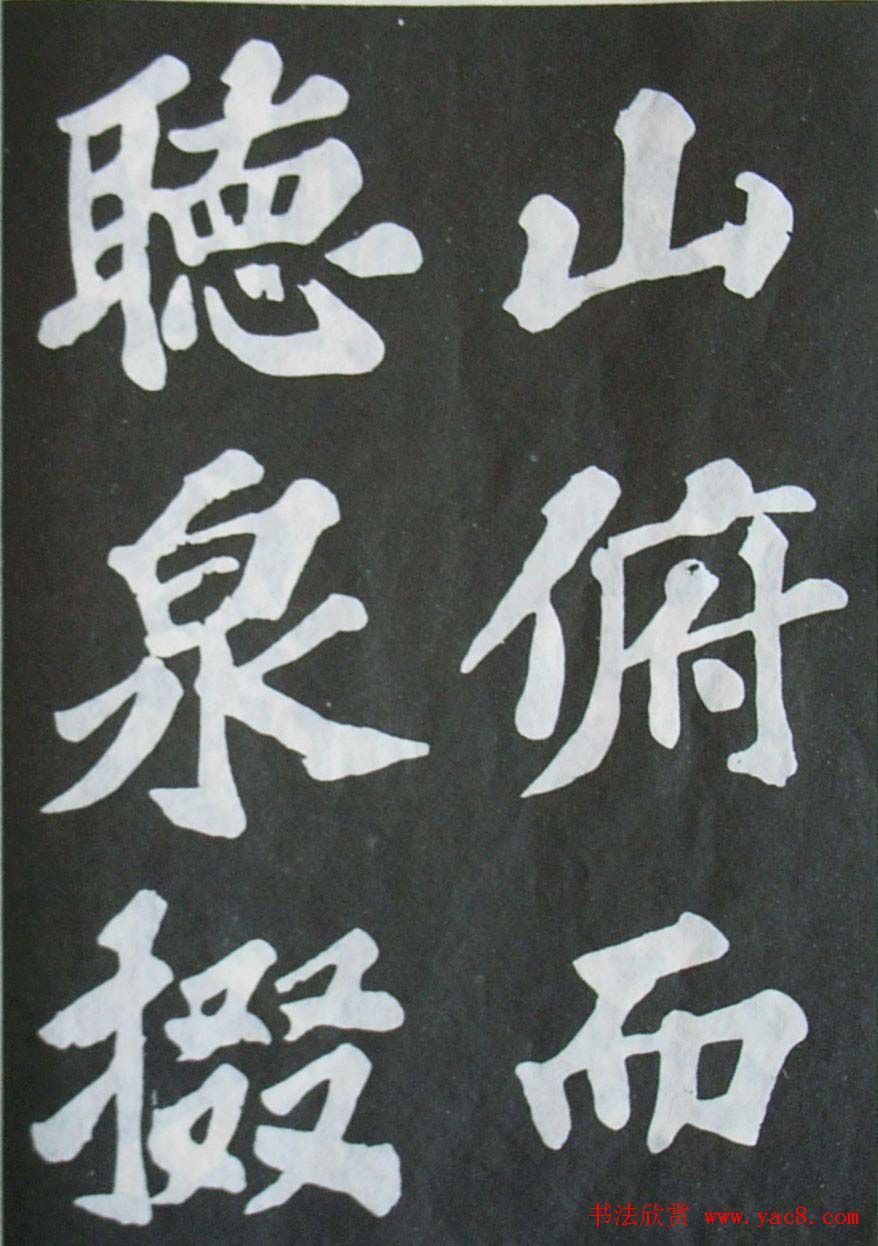 山俯而
聽泉掇
书法欣赏 www.yac8.com